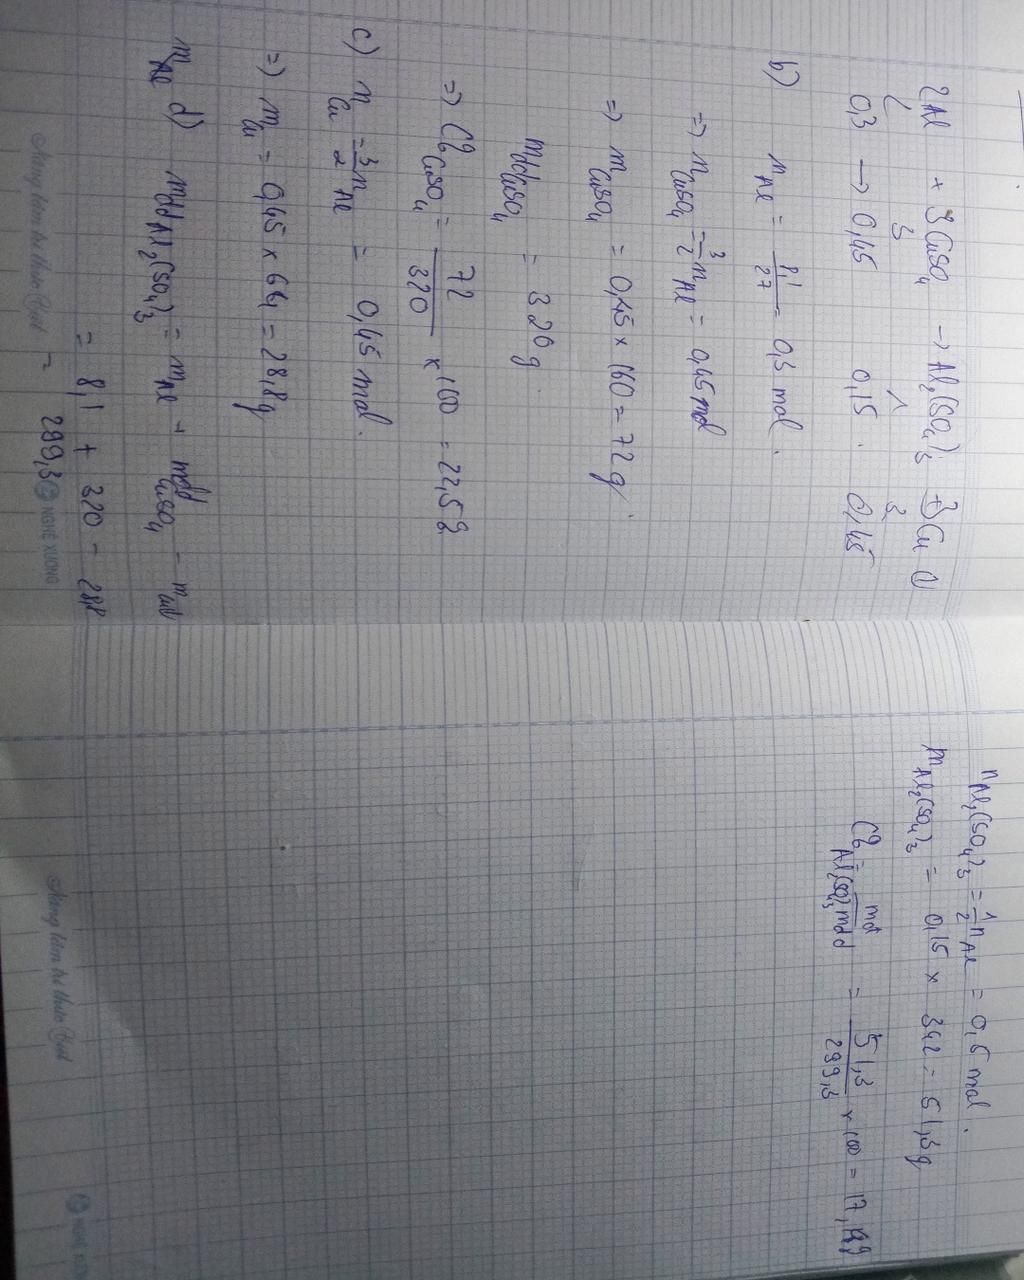 2Al + 3CuSO4 → Al2(SO4)3 + 3Cu ↓
2 3 1 3
0,3 → 0,45 0,15 . 0,45
b) nAl = 8,1/27 = 0,3 mol.
=> nCuSO4 = 3/2 nAl = 0,45 mol
=> mCuSO4 = 0,45 × 160 = 72 g.
mddCuSO4 = 320 g.
=> C%CuSO4 = 72/320 × 100 = 22,5%
c) nCu = 3/2 nAl = 0,45 mol.
=> mCu = 0,45 × 64 = 28,8g
mAl d) mddAl2(SO4)3 = mAl + mddCuSO4 - mCu↓
= 8,1 + 320 - 28,8
= 299,3
Nâng tầm tri thức Việt
NGHÊ XUONG
nAl2(SO4)3 = 1/2 nAl = 0,5 mol.
mAl2(SO4)3 = 0,15 × 342 = 51,3g
C%Al2(SO4)3 = mct/mdd = 51,3/299,3 × 100 = 17,14%
Nâng tầm tri thức Việt